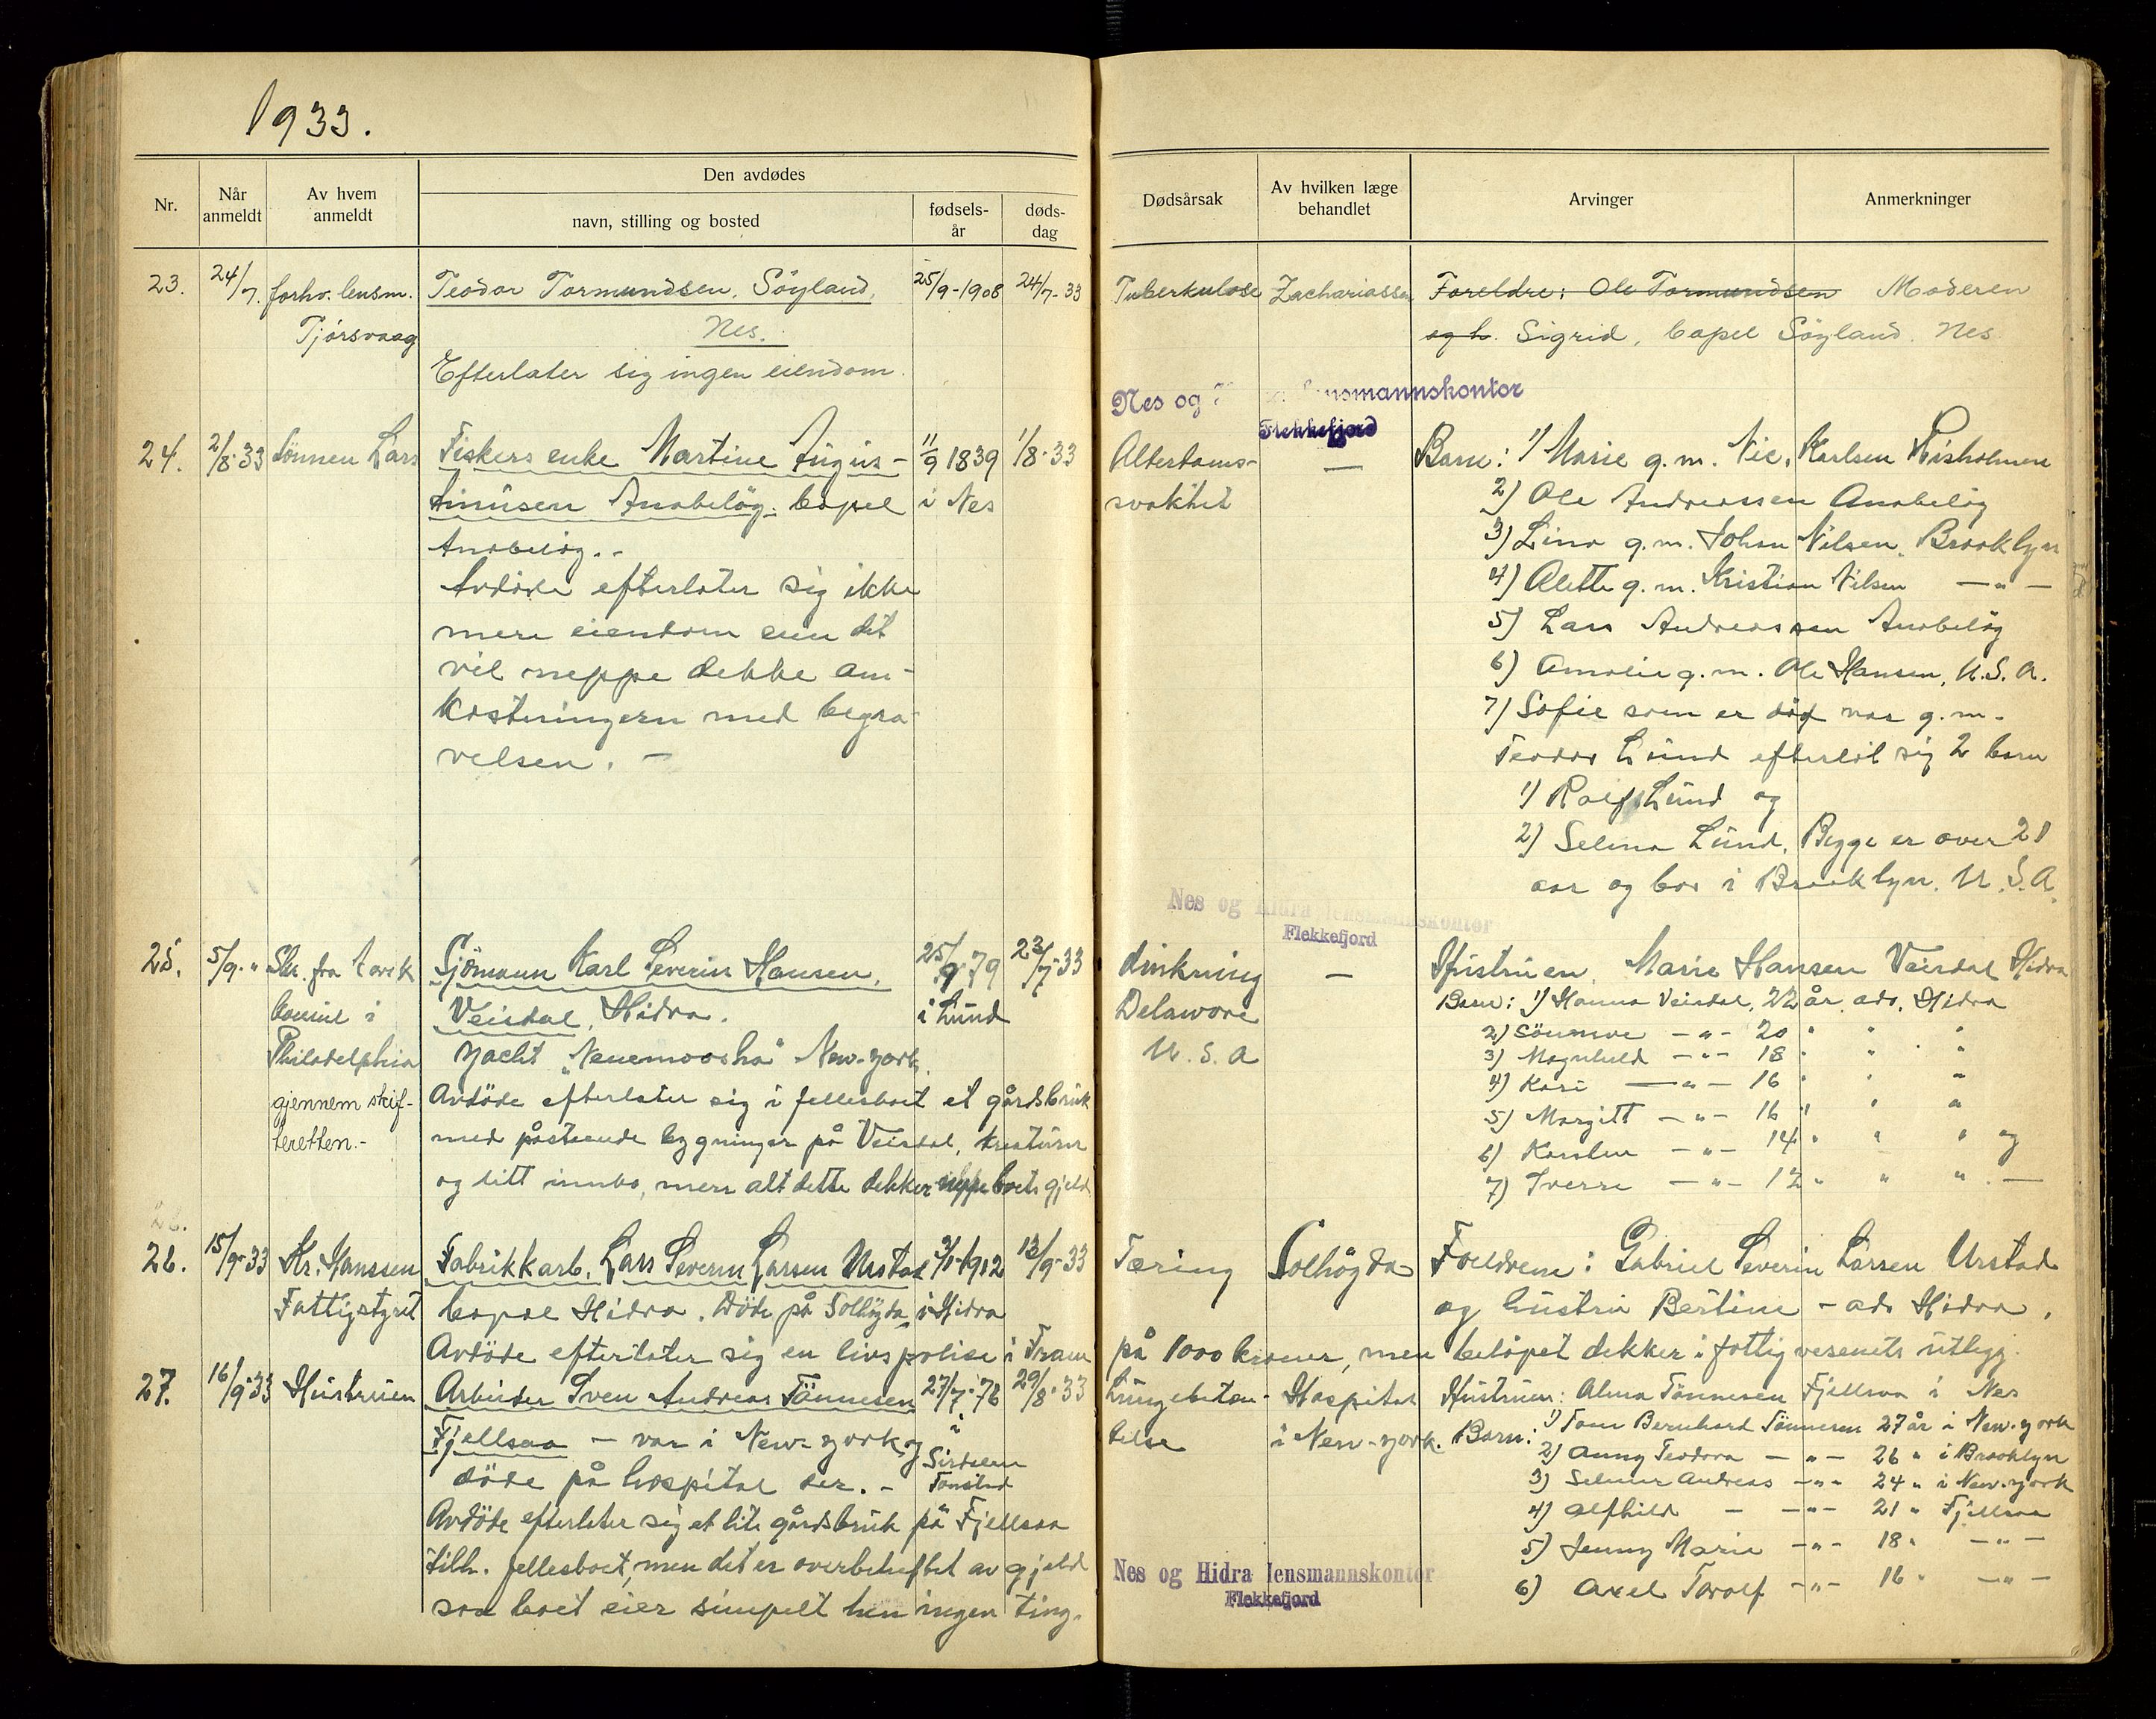 1933.
Nr.
Når anmeldt
Av hvem anmeldt
Den avdødes
navn, stilling og bosted
fødsels-år
døds-dag
Dødsårsak
Av hvilken læge behandlet
Arvinger
Anmerkninger
23. 24/7. forhv. lensm. Teodor Tormundsen, Söyland, 25/9-1908 24/7-33 Tuberkulose Zachariassen Foreldre: Ole Tormundsen Moderen
Tjörsvaag Nes. og h. Sigrid, bopel Söyland. Nes
Efterlater sig ingen eiendom.
Nes og lensmannskontor
Flekkefjord
24. 2/8-33 Sönnen Lars Fiskers enke Martine Augus- 11/9 1839 1/8-33 Alterdoms- — Barn: 1) Marie g.m. Nic. Karlsen Risholmen
tinusen Anabelög. bopel i Nes svakhet 2) Ole Andreassen Anabelög
Anabelög.- 3) Lina g.m. Johan Nilsen, Brooklyn
Avdöde efterlater sig ikke 4) Alette g.m. Kristian Nilsen —"—
mere eiendom enn det 5) Lars Andreassen Anabelög
vil neppe dekke om- 6) Amalie g.m. Ole Hansen, U.S.A.
kostningern med begra- 7) Sofie som er död var g.m.
velsen. — Teodor Lund efterlot sig 2 barn
1) Rolf Lund og
2) Selma Lund. Begge er over 21
aar og bor i Brooklyn. U.S.A.
Nes og Hidra lensmannskontor
Flekkefjord
25. 5/9." Skr. fra norsk Sjömann Karl Severin Hansen, 25/9-79 23/7-33 drukning — Hustruen Marie Hansen Veisdal Hidra
konsul i Veisdal, Hidra. i Lund Delaware Barn: 1) Hanna Veisdal, 22 år, adr. Hidra
Philadelphia Yacht "Nenemoosha" New-York. U.S.A 2) Sönneve —"— 20 " " "
3) Magnhild —"— 18 " " "
gjennem skif- Avdöde efterlater sig i fellesboet et gårdsbruk 4) Kari —"— 16 " " "
teretten.- med påstående bygninger på Veisdal, kreaturer 5) Margitt —"— 16 " " "
6) Karsten —"— 14 " " " og
og litt innbo, men alt dette dekker neppe boets gjeld 7) Sverre —"— 12 " " " —
26. 15/9-33 Kr. Hanssen Fabrikkarb. Lars Severin Larsen Urstad 3/1-1912 13/9-33 Tæring Solhögda Foreldrene: Gabriel Severin Larsen Urstad
Fattigstyret bopel Hidra. Döde på Solhögda i Hidra og hustru Bertine - adr Hidra.
Avdöde efterlater sig en livspolise i Fram på 1000 kroner, men belöpet dekker i fattigvesenets utlegg.
27. 16/9-33 Hustruen Arbeider Sven Andreas Tönnesen 27/7-76 29/8-33 Lungebeten- Hospital Hustruen: Alma Tönnesen Fjellsaa i Nes
Fjellsaa — var i New-York og i Sirdalen Tonstad telse i New-York. Barn: 1) Tom Bernhard Tönnesen 27 år i New-York
döde på hospital der. - 2) Anny Teodora —"— 26 " i Brooklyn
3) Selmer Andreas —"— 24 " i New-York
Avdöde efterlater sig et lite gårdsbruk på Fjellsaa 4) Alfhild — —"— 21 " Fjellsaa
tilh. fellesboet, men det er overbeheftet av gjeld 5) Jenny Marie —"— 18 " —"—
saa boet eier simpelt hen ingen ting. 6) Axel Torolf —"— 16 " —"—
Nes og Hidra lensmannskontor
Flekkefjord